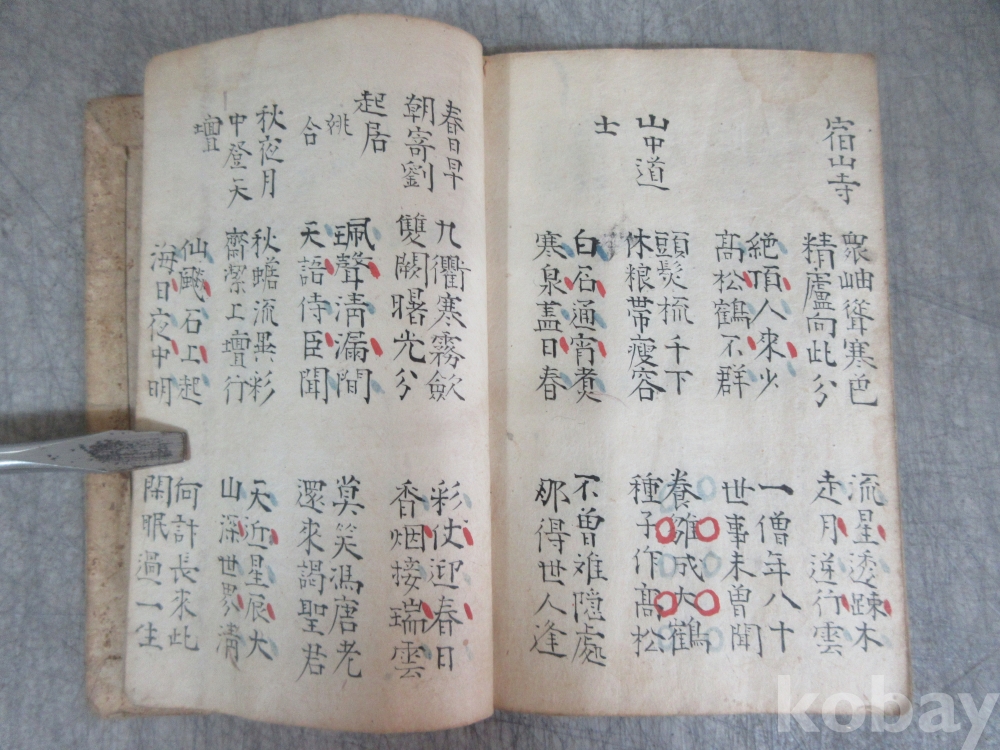 宿山寺
衆岫聳寒色
精廬向此分
流星透踈木
走月逆行雲
絶頂人來少
髙松鶴不群
一僧年八十
世事未曽聞
山中道
士
頭髮梳千下
休粮帶瘦容
養雛成大鶴
種子作髙松
白石通宵煑
寒泉盖日春
不曽难隱處
那得世人逢
春日早
朝寄劉
起居
姚
合
九衢寒霧歛
雙闕曙光分
彩仗迎春日
香烟接瑞雲
珮聲清漏間
天語侍臣聞
莫笑馮唐老
還來謁聖君
秋夜月
中登天
壇
秋蟾流異彩
齋潔上壇行
天近星辰大
山深世界清
仙飈石上起
海日夜中明
何計長來此
閑眠過一生
kobay